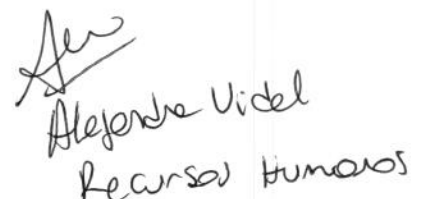 Alejandra Vidal
Recursos Humanos